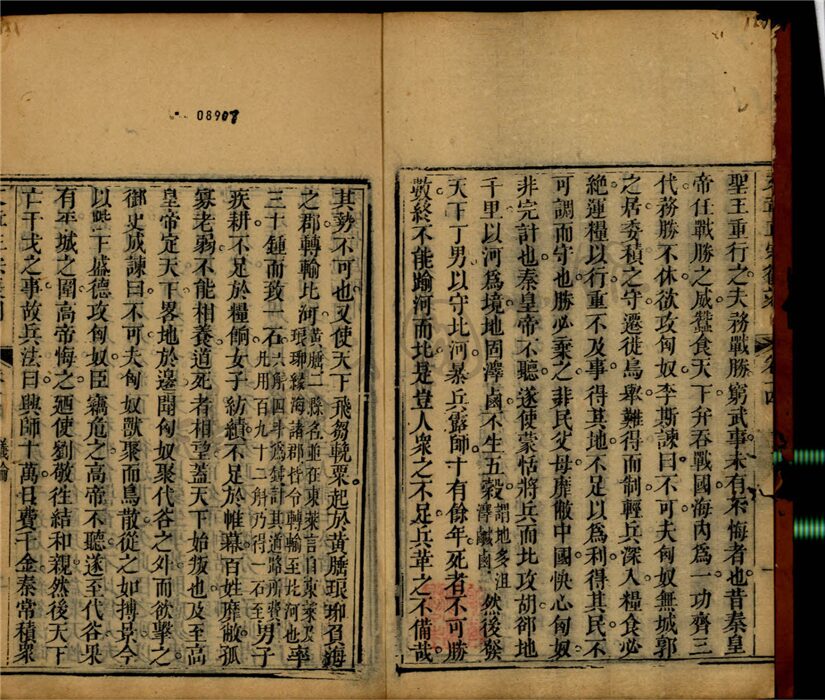 聖王重行之夫務戰勝窮武事未有不悔者也昔秦皇
帝任戰勝之威蠶食天下弁吞戰國海內爲一功齊三
代務勝不休欲攻匈奴李斯諫曰不可夫匈奴無城郭
之居委積之守遷徙鳥舉難得而制輕兵深入糧食必
絕運糧以行重不及事得其地不足以爲利得其民不
可調而守也勝必棄之非民父母靡敝中國快心匈奴
非完計也秦皇帝不聽遂使蒙恬將兵而北攻胡郤地
千里以河爲境地固澤鹵不生五穀謂地多沮澤鹹鹵然後發
天下丁男以守北河暴兵露師十有餘年死者不可勝
數終不能踰河而北是豈人衆之不足兵革之不備哉
08907
其勢不可也又使天下飛芻輓粟起於黃腄琅琊負海
之郡轉輸北河黃腄二縣名並在東萊言自東萊及琅琊緣海諸郡皆令轉輸至北河也率
三十鍾而致一石六斛四斗爲鍾計其道路所費凡用百九十二斛乃得一石至男子
疾耕不足於糧餉女子紡績不足於帷幕百姓靡敝孤
寡老弱不能相養道死者相望蓋天下始叛也及至高
皇帝定天下畧地於邊聞匈奴聚代谷之外而欲擊之
御史成諫曰不可夫匈奴獸聚而鳥散從之如搏景今
以陛下盛德攻匈奴臣竊危之高帝不聽遂至代谷果
有平城之圍高帝悔之廼使劉敬往結和親然後天下
亡干戈之事故兵法曰興師十萬日費千金秦常積衆
議論